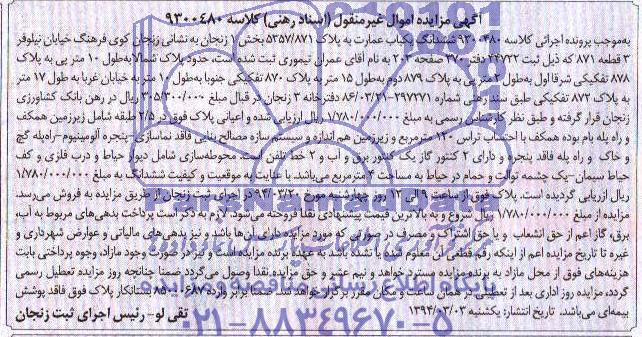 آگهی مزایده اموال غیرمنقول (اسناد رهنی) کلاسه ۹۳۰۰۴۸۰
به‌موجب پرونده اجرائی کلاسه ۹۳۰۰۴۸۰ ششدانگ یکباب عمارت به پلاک ۵۳۵۷/۸۷۱ بخش ۱ زنجان به نشانی زنجان کوی فرهنگ خیابان نیلوفر
۳ قطعه ۸۷۱ که ذیل ثبت ۲۴۷۲۲ دفتر ۳۷۰ صفحه ۲۰۳ به نام آقای عمران تیموری ثبت شده است، حدود پلاک شمالا به‌طول ۱۰ متر پی به پلاک
۸۷۸ تفکیکی شرقا اول به‌طول ۲ متر پی به پلاک ۸۷۹ دوم به‌طول ۱۵ متر به پلاک ۸۷۰ تفکیکی جنوبا به‌طول ۱۰ متر به خیابان غربا به طول ۱۷ متر
به پلاک ۸۷۲ تفکیکی طبق سند رهنی شماره ۲۹۷۲۷۱-۸۶/۰۳/۲۱ دفترخانه ۳ زنجان در قبال مبلغ ۳۰۵/۳۰۰/۰۰۰ ریال در رهن بانک کشاورزی
زنجان قرار گرفته و طبق نظر کارشناس رسمی به مبلغ ۱/۷۸۰/۰۰۰/۰۰۰ ریال ارزیابی شده و اعیانی پلاک فوق در ۲/۵ طبقه شامل زیرزمین همکف
و راه پله بام بوده همکف با احتساب تراس ۱۲۰ مترمربع و زیرزمین هم اندازه و سیستم سازه مصالح بنایی فاقد نماسازی-پنجره آلومینیوم-راه‌پله گچ
و خاک و راه پله فاقد پنجره و دارای ۲ کنتور گاز یک کنتور برق و آب و ۲ خط تلفن است. محوطه‌سازی شامل دیوار حیاط و درب فلزی و کف
حیاط سیمان-یک چشمه توالت و حمام در حیاط به مساحت ۴ مترمربع می‌باشد. با عنایت به موقعیت و کیفیت ششدانگ به مبلغ ۱/۷۸۰/۰۰۰/۰۰۰
ریال ارزیابی گردیده است. پلاک فوق از ساعت ۹ الی ۱۲ روز چهارشنبه مورخ ۹۴/۰۳/۲۰ در اجرای ثبت زنجان از طریق مزایده به فروش می‌رسد.
مزایده از مبلغ ۱/۷۸۰/۰۰۰/۰۰۰ ریال شروع و به بالاترین قیمت پیشنهادی نقدا فروخته می‌شود. لازم به ذکر است پرداخت بدهی‌های مربوط به آب،
برق، گاز اعم از حق انشعاب و یا حق اشتراک و مصرف در صورتی که مورد مزایده دارای آن‌ها باشد و نیز بدهی‌های مالیاتی و عوارض شهرداری و
غیره تا تاریخ مزایده اعم از اینکه رقم قطعی آن معلوم شده یا نشده باشد به عهده برنده مزایده است و نیز در صورت وجود مازاد، وجوه پرداختی بابت
هزینه‌های فوق از محل مازاد به برنده مزایده مسترد خواهد و نیم عشر و حق مزایده نقدا وصول می‌گردد ضمنا چنانچه روز مزایده تعطیل رسمی
گردد، مزایده روز اداری بعد از تعطیلی در همان ساعت و مکان مقرر برگزار خواهد شد. ضمنا برابر وارده بستانکار پلاک فوق فاقد پوشش
بیمه‌ای می‌باشد. تاریخ انتشار: یکشنبه ۱۳۹۴/۰۳/۰۳
تقی لو- رئیس اجرای ثبت زنجان
۰۲۱-۸۸۳۴۹۶۷۰-۵